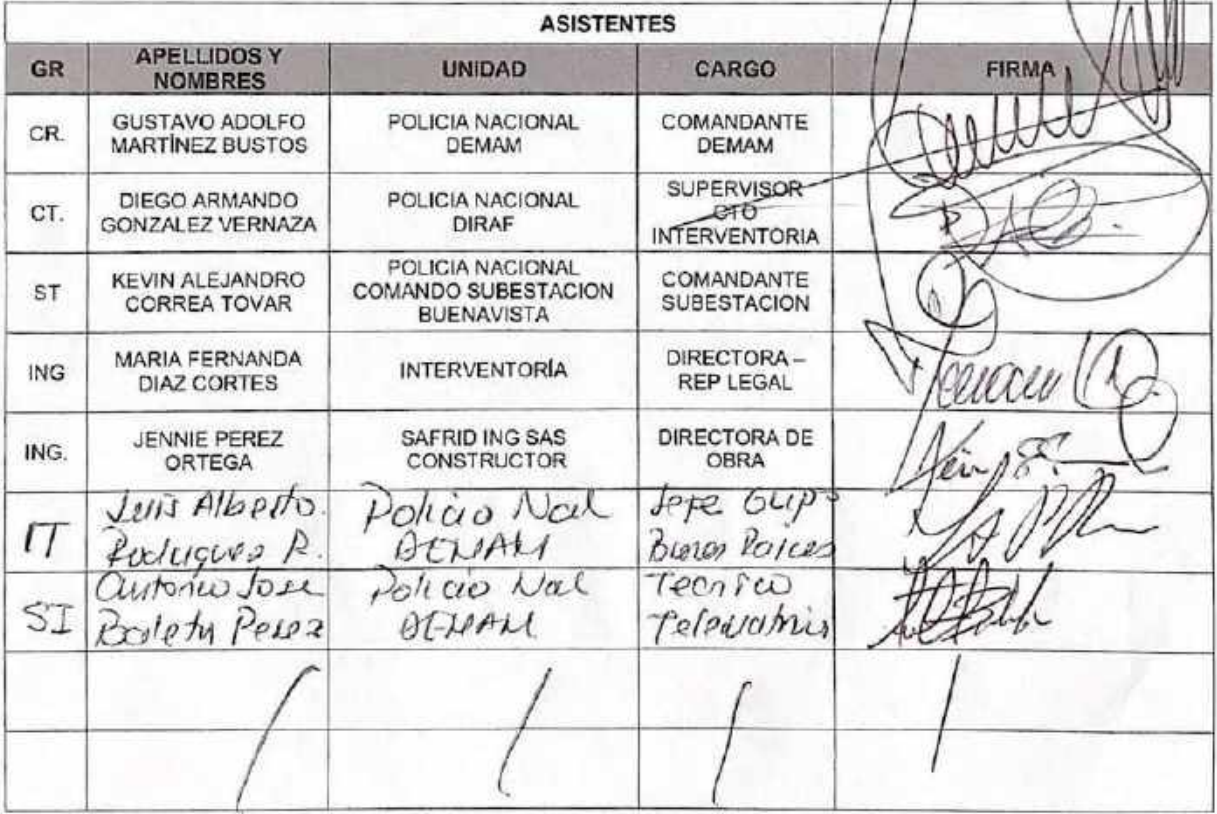 ASISTENTES
GR APELLIDOS Y NOMBRES UNIDAD CARGO FIRMA
CR. GUSTAVO ADOLFO MARTÍNEZ BUSTOS POLICIA NACIONAL DEMAM COMANDANTE DEMAM
CT. DIEGO ARMANDO GONZALEZ VERNAZA POLICIA NACIONAL DIRAF SUPERVISOR CTO INTERVENTORIA
ST KEVIN ALEJANDRO CORREA TOVAR POLICIA NACIONAL COMANDO SUBESTACION BUENAVISTA COMANDANTE SUBESTACION
ING MARIA FERNANDA DIAZ CORTES INTERVENTORÍA DIRECTORA – REP LEGAL
ING. JENNIE PEREZ ORTEGA SAFRID ING SAS CONSTRUCTOR DIRECTORA DE OBRA
IT Luis Alberto Rodriguez R. Policia Nal DEMAM Jefe Grupo Bienes Raices
SI Antonio Jose Perez Policia Nal DEMAM Tecnico